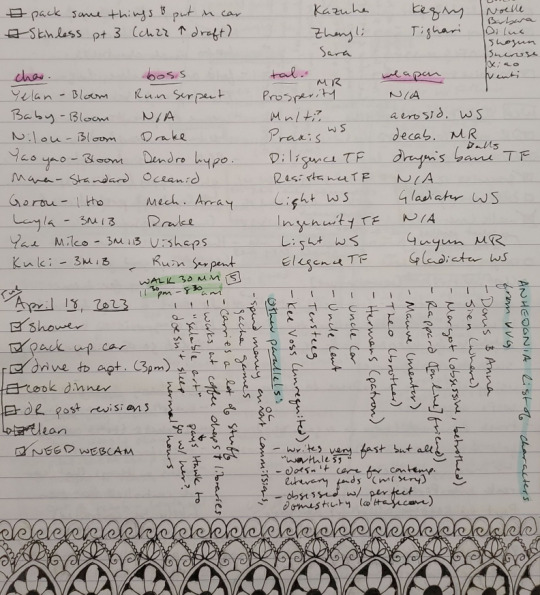 pack some things & put in car
Skinless pt 3 (ch 22 ↑ draft)
Kazuha
Zhongli
Sara
Keqing
Tighnari
Noelle
Barbara
Diluc
Shogun
Sucrose
Xiao
Venti
char. boss tal. weapon
Yelan - Bloom Ruin Serpent Prosperity MR N/A
Baby - Bloom N/A Multi? aerosid. WS
Nilou - Bloom Drake Praxis WS decab. MR
Yaoyao - Bloom Dendro hypo. Diligence TF dragon's bane TF
Mona - Standard Oceanid Resistance TF N/A
Gorou - Itto Mech. Array Light WS Gladiator WS
Layla - 3M1B Drake Ingenuity TF N/A
Yae Miko - 3M1B Vishaps Light WS Guyun MR
Kuki - 3M1B Ruin Serpent Elegance TF Gladiator WS
WALK 30 MIN 5
Tues
April 18, 2023
shower
pack up car
drive to apt. (3pm)
cook dinner
DR post revisions
clean
NEED WEBCAM
ANHEDONIA List of characters
from VVG
- Dorus & Anna
- Sien (whore)
- Margot (obsessive, betrothed)
- Rappard [on/line] friend)
- Mauve (mentor)
- Theo (brother)
- Hermans (patron)
- Uncle Cor
- Uncle Cent
- Tersteeg
- Kee Voss (unrequited)
Other parallels
- spend money on art commissions,
gacha games
- carries a lot of stuffs
- works at coffee shops & libraries
"sociable artist"
- doesn't sleep normal hours
- writes very fast but all
"worthless"
- doesn't care for contemp.
literary funds (misery)
- obsessed w/ perfect
domesticity (cottagecore)